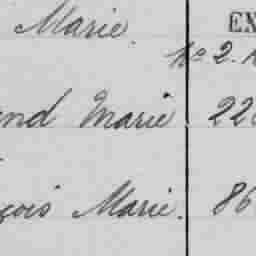 Marie. EX
No 2.
and Marie 22
çois Marie. 86